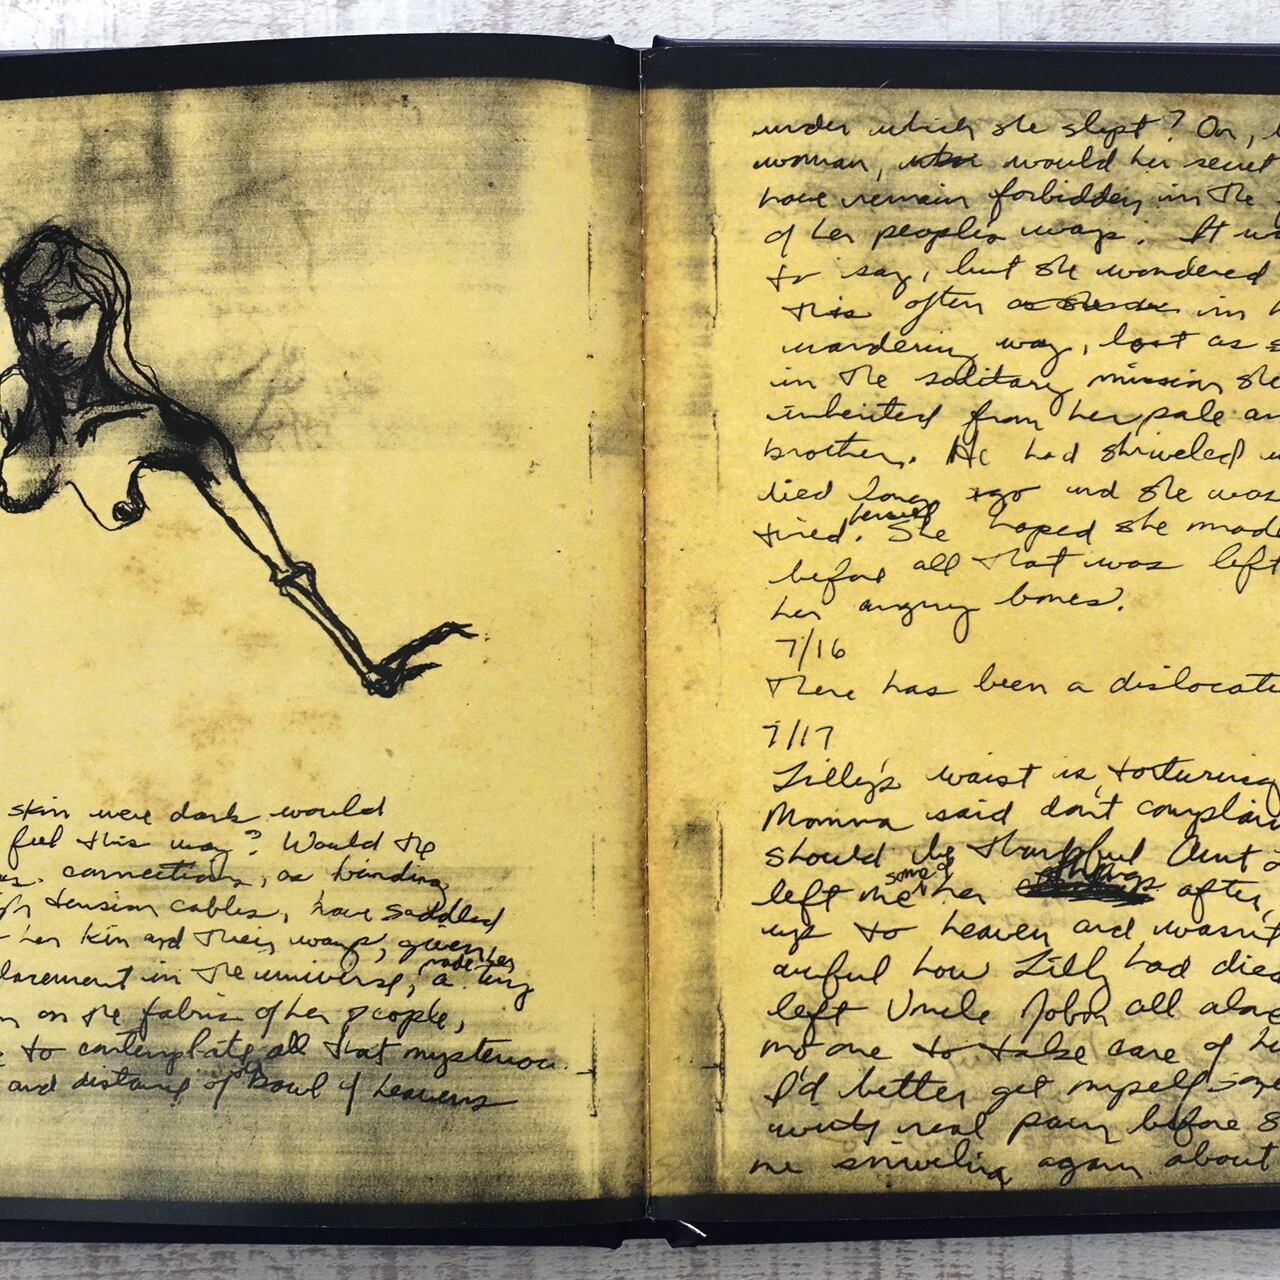 skin were dark would
feel this way? Would the
connections, as binding
tension cables, have saddled
her kin and their ways, given her
placement in the universe, made her a tiny
on the fabric of her people,
to contemplate all that mysterious
and distant of old Bowl of heavens
under which she slept? Or,
woman, would her secret
have remain forbidden in the
of her people's ways. It
to say, but she wondered
this often in
wandering way, lost as
in the solitary mission she
inherited from her pale
brother. He had shriveled
died long ago and she was
tired herself. She hoped she made
before all that was left
her angry bones.
7/16
There has been a dislocati
7/17
Lilly's waist is torturing
Momma said don't complain
should be thankful Aunt
left me some of her things after
up to heaven and wasn't
awful how Lilly had died
left Uncle Jobin all alone
no one to take care of
I'd better get myself some
worth real pain before
me sniveling again about